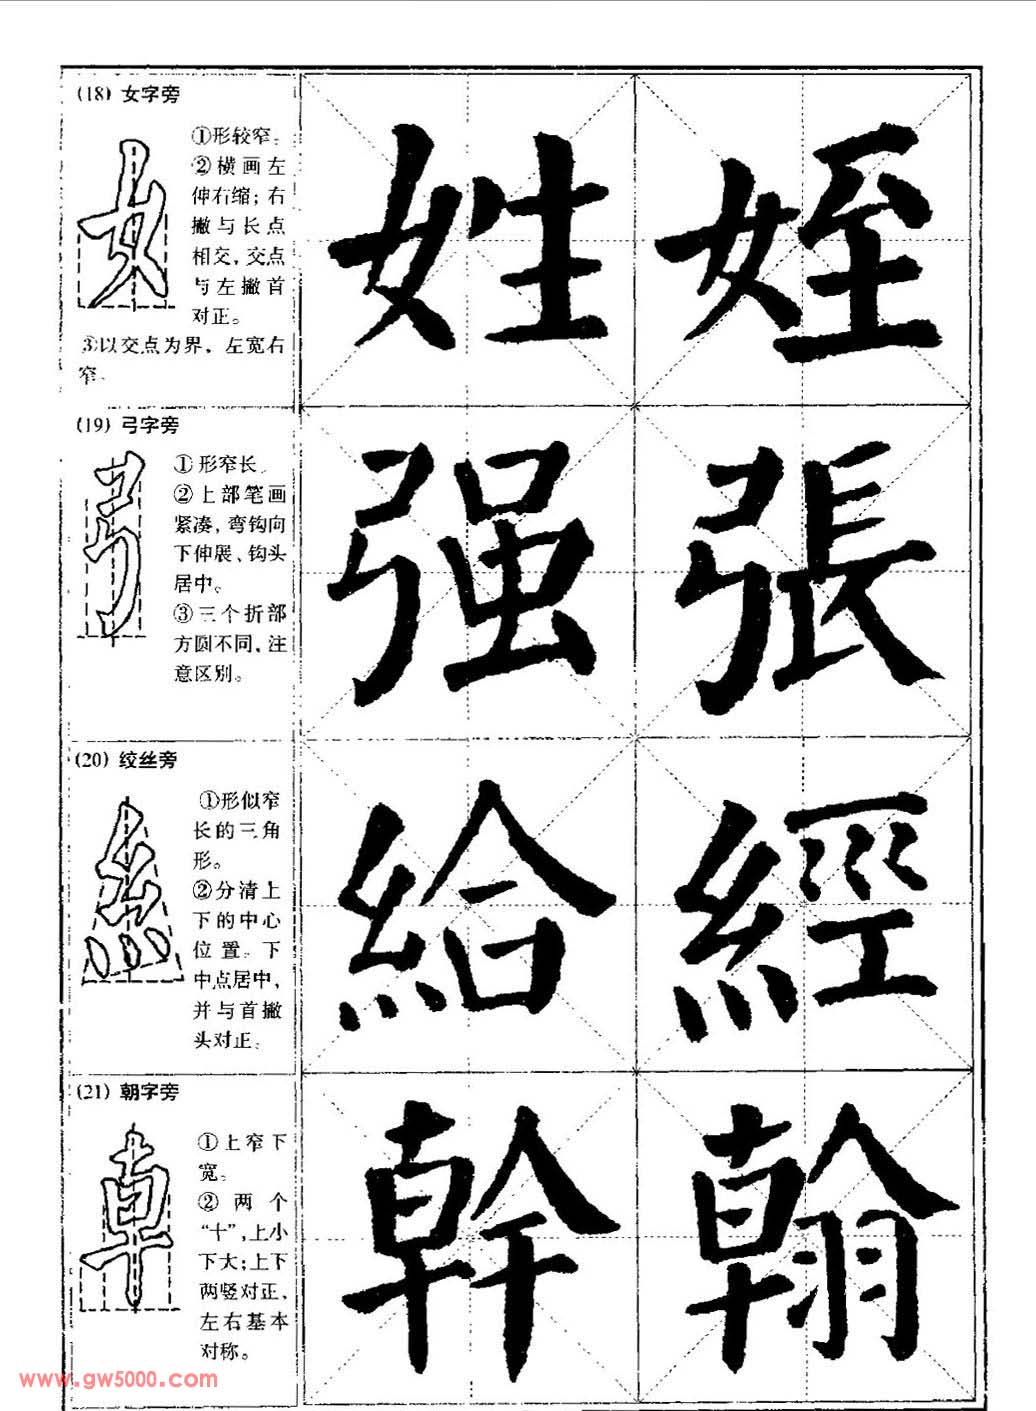 (18) 女字旁
①形较窄。
②横画左
伸右缩；右
撇与长点
相交，交点
与左撇首
对正。
③以交点为界，左宽右
窄。
女
姓 姪
(19) 弓字旁
①形窄长。
②上部笔画
紧凑，弯钩向
下伸展、钩头
居中。
③三个折部
方圆不同，注
意区别。
弓
强 張
(20) 绞丝旁
①形似窄
长的三角
形。
②分清上
下的中心
位置。下
中点居中，
并与首撇
头对正。
糹
給 經
(21) 朝字旁
①上窄下
宽。
②两个
“十”，上小
下大；上下
两竖对正，
左右基本
对称。
幹 翰
www.gw5000.com